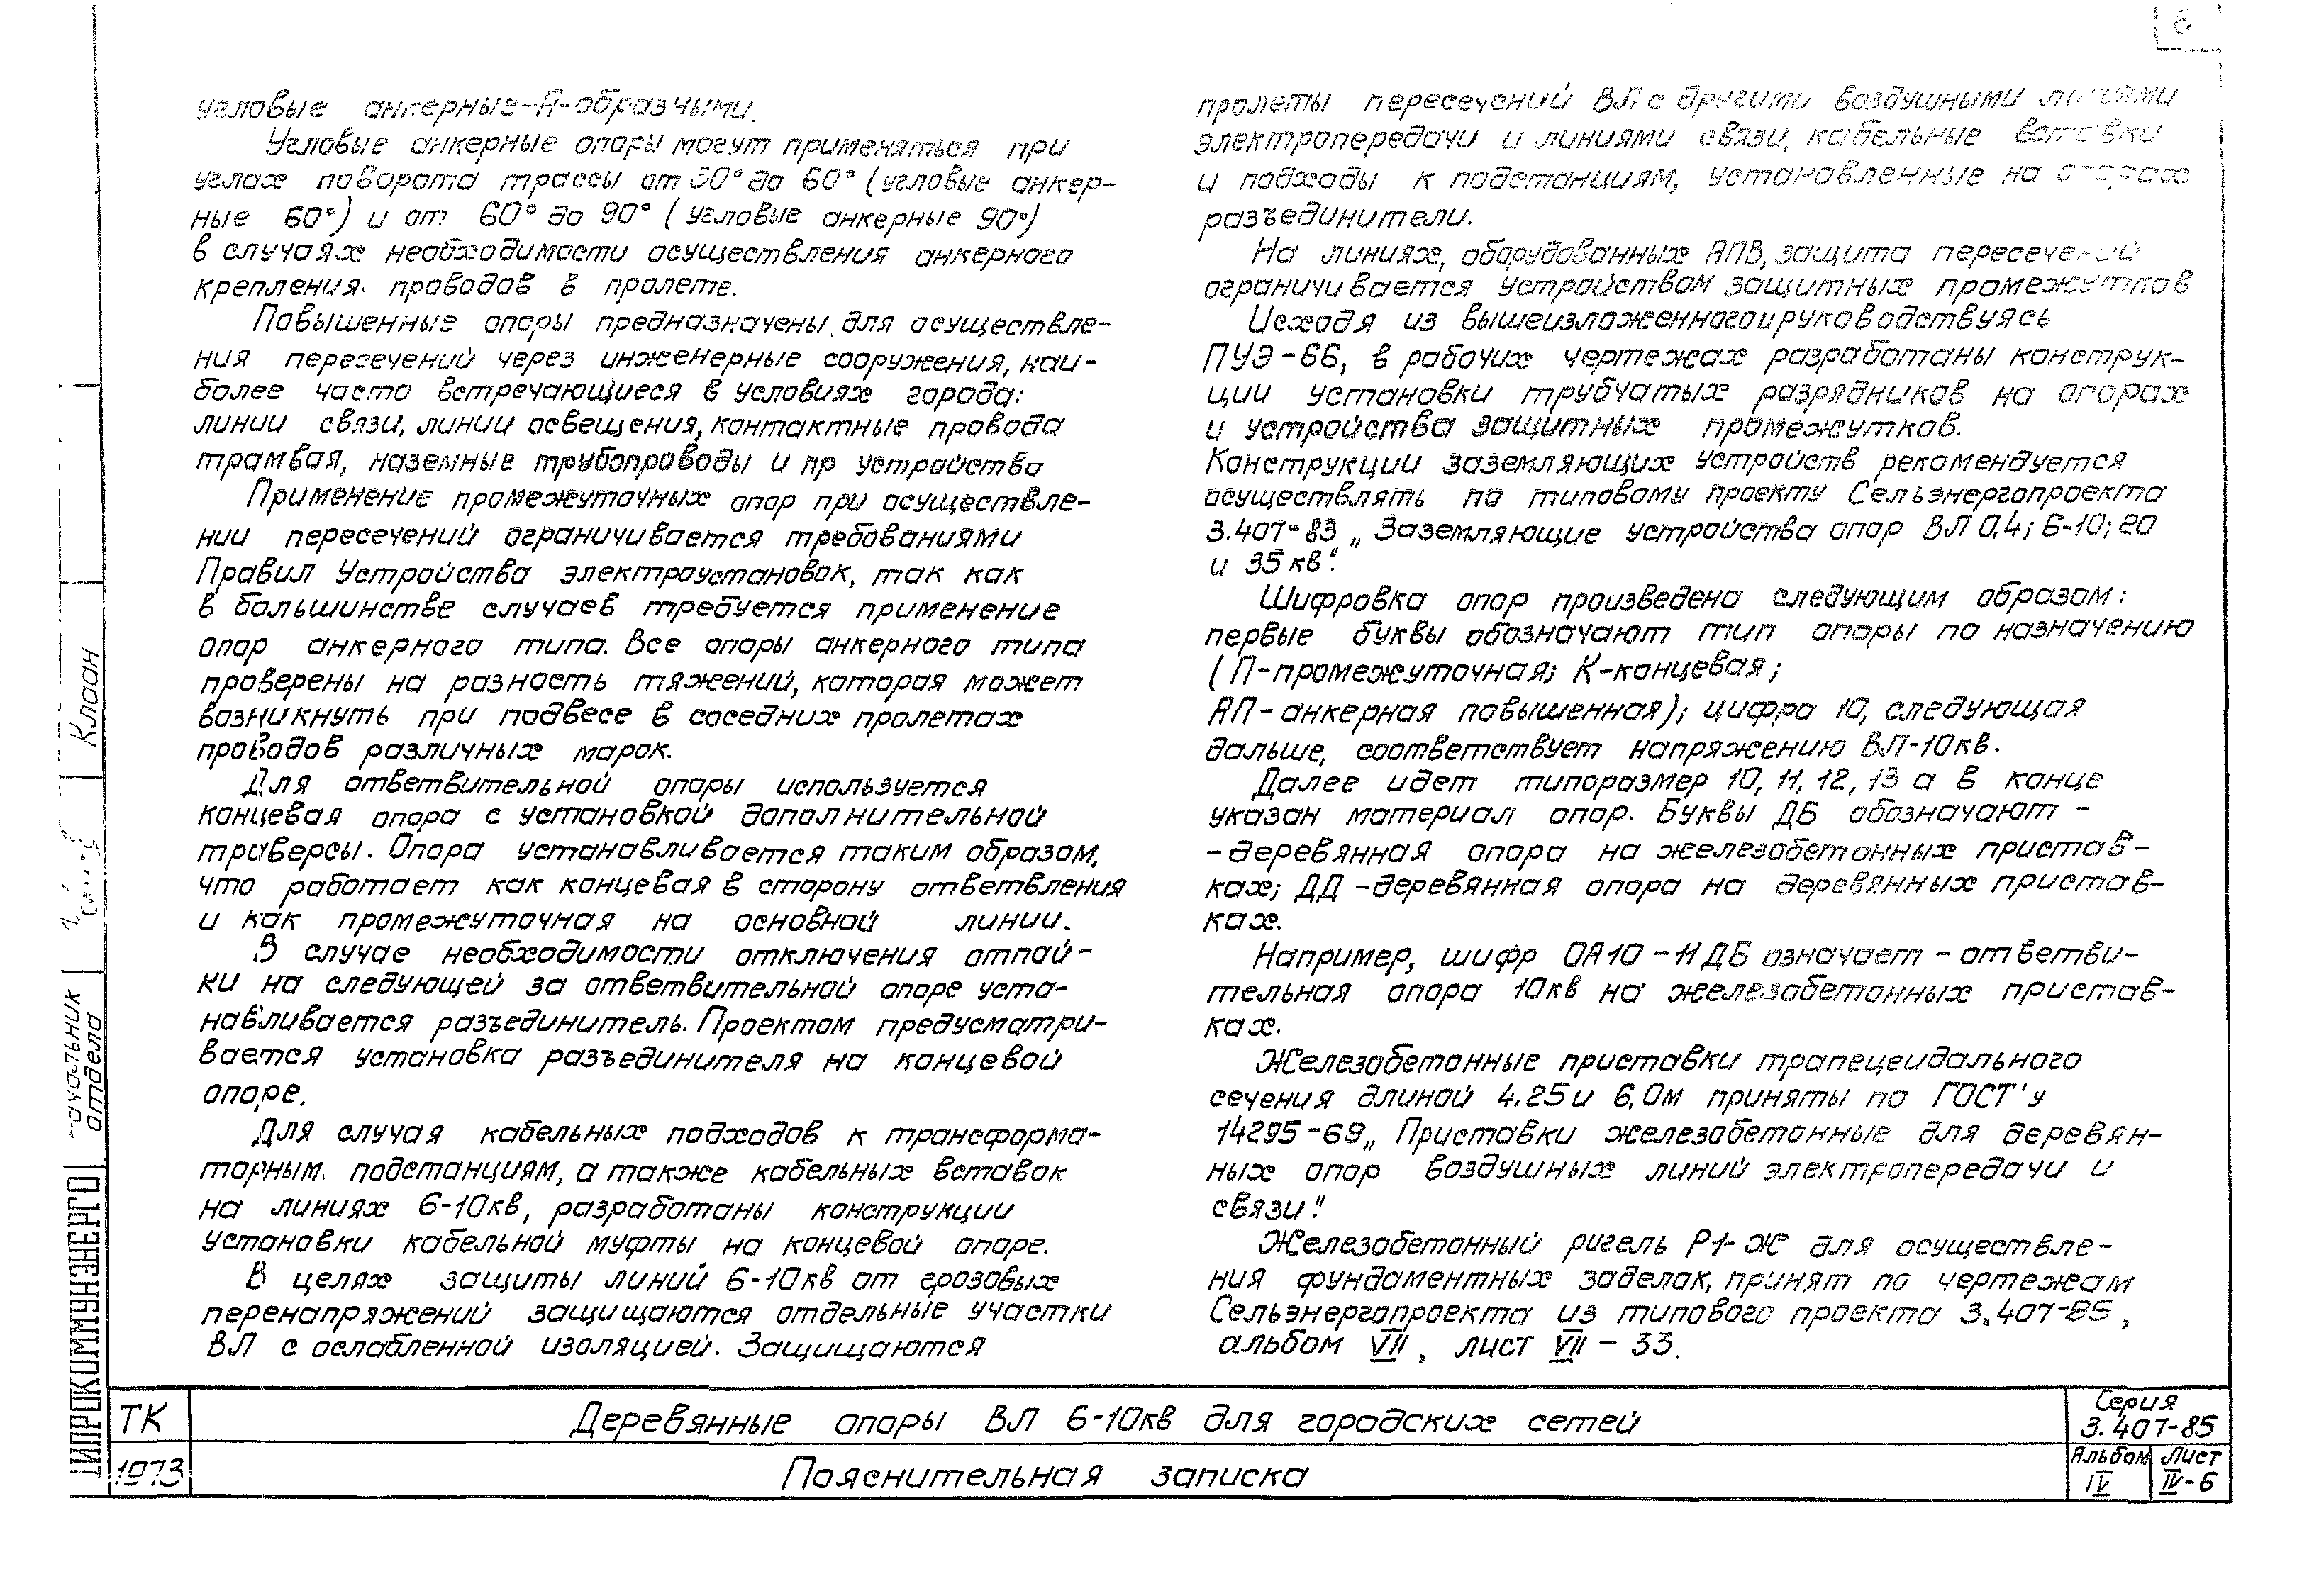 6
угловые анкерные-А-образными.
Угловые анкерные опоры могут применяться при
углах поворота трассы от 30° до 60° (угловые анкер-
ные 60°) и от 60° до 90° (угловые анкерные 90°)
в случаях необходимости осуществления анкерного
крепления проводов в пролете.
Повышенные опоры предназначены для осуществле-
ния пересечений через инженерные сооружения, наи-
более часто встречающиеся в условиях города:
линии связи, линии освещения, контактные провода
трамвая, наземные трубопроводы и пр устройства
Применение промежуточных опор при осуществле-
нии пересечений ограничивается требованиями
Правил Устройства электроустановок, так как
в большинстве случаев требуется применение
опор анкерного типа. Все опоры анкерного типа
проверены на разность тяжений, которая может
возникнуть при подвесе в соседних пролетах
проводов различных марок.
Для ответвительной опоры используется
концевая опора с установкой дополнительной
траверсы. Опора устанавливается таким образом,
что работает как концевая в сторону ответвления
и как промежуточная на основной линии.
В случае необходимости отключения отпай-
ки на следующей за ответвительной опоре уста-
навливается разъединитель. Проектом предусматри-
вается установка разъединителя на концевой
опоре.
Для случая кабельных подходов к трансформа-
торным подстанциям, а также кабельных вставок
на линиях 6-10кв, разработаны конструкции
установки кабельной муфты на концевой опоре.
В целях защиты линий 6-10кв от грозовых
перенапряжений защищаются отдельные участки
ВЛ с ослабленной изоляцией. Защищаются
пролеты пересечений ВЛ с другими воздушными линиями
электропередачи и линиями связи, кабельные вставки
и подходы к подстанциям, установленные на опорах
разъединители.
На линиях, оборудованных АПВ, защита пересечений
ограничивается устройством защитных промежутков
Исходя из вышеизложенного и руководствуясь
ПУЭ-66, в рабочих чертежах разработаны конструк-
ции установки трубчатых разрядников на опорах
и устройства защитных промежутков.
Конструкции заземляющих устройств рекомендуется
осуществлять по типовому проекту Сельэнергопроекта
3.407-83 „Заземляющие устройства опор ВЛ 0,4; 6-10; 20
и 35кв".
Шифровка опор произведена следующим образом:
первые буквы обозначают тип опоры по назначению
(П-промежуточная; К-концевая;
АП-анкерная повышенная); цифра 10, следующая
дальше, соответствует напряжению ВЛ-10кв.
Далее идет типоразмер 10, 11, 12, 13 а в конце
указан материал опор. Буквы ДБ обозначают -
-деревянная опора на железобетонных пристав-
ках; ДД -деревянная опора на деревянных пристав-
ках.
Например, шифр ОА10-11ДБ означает - ответви-
тельная опора 10кв на железобетонных пристав-
ках.
Железобетонные приставки трапецеидального
сечения длиной 4.25 и 6,0м приняты по ГОСТ'у
14295-69 „Приставки железобетонные для деревян-
ных опор воздушных линий электропередачи и
связи".
Железобетонный ригель Р1-Ж для осуществле-
ния фундаментных заделок, принят по чертежам
Сельэнергопроекта из типового проекта 3.407-85,
альбом VII, лист VII - 33.
Клаан
начальник
отдела
ГИПРОКОММУНЭНЕРГО
ТК
1973
Деревянные опоры ВЛ 6-10кв для городских сетей
Пояснительная записка
Серия
3.407-85
Альбом
IV
Лист
IV-6